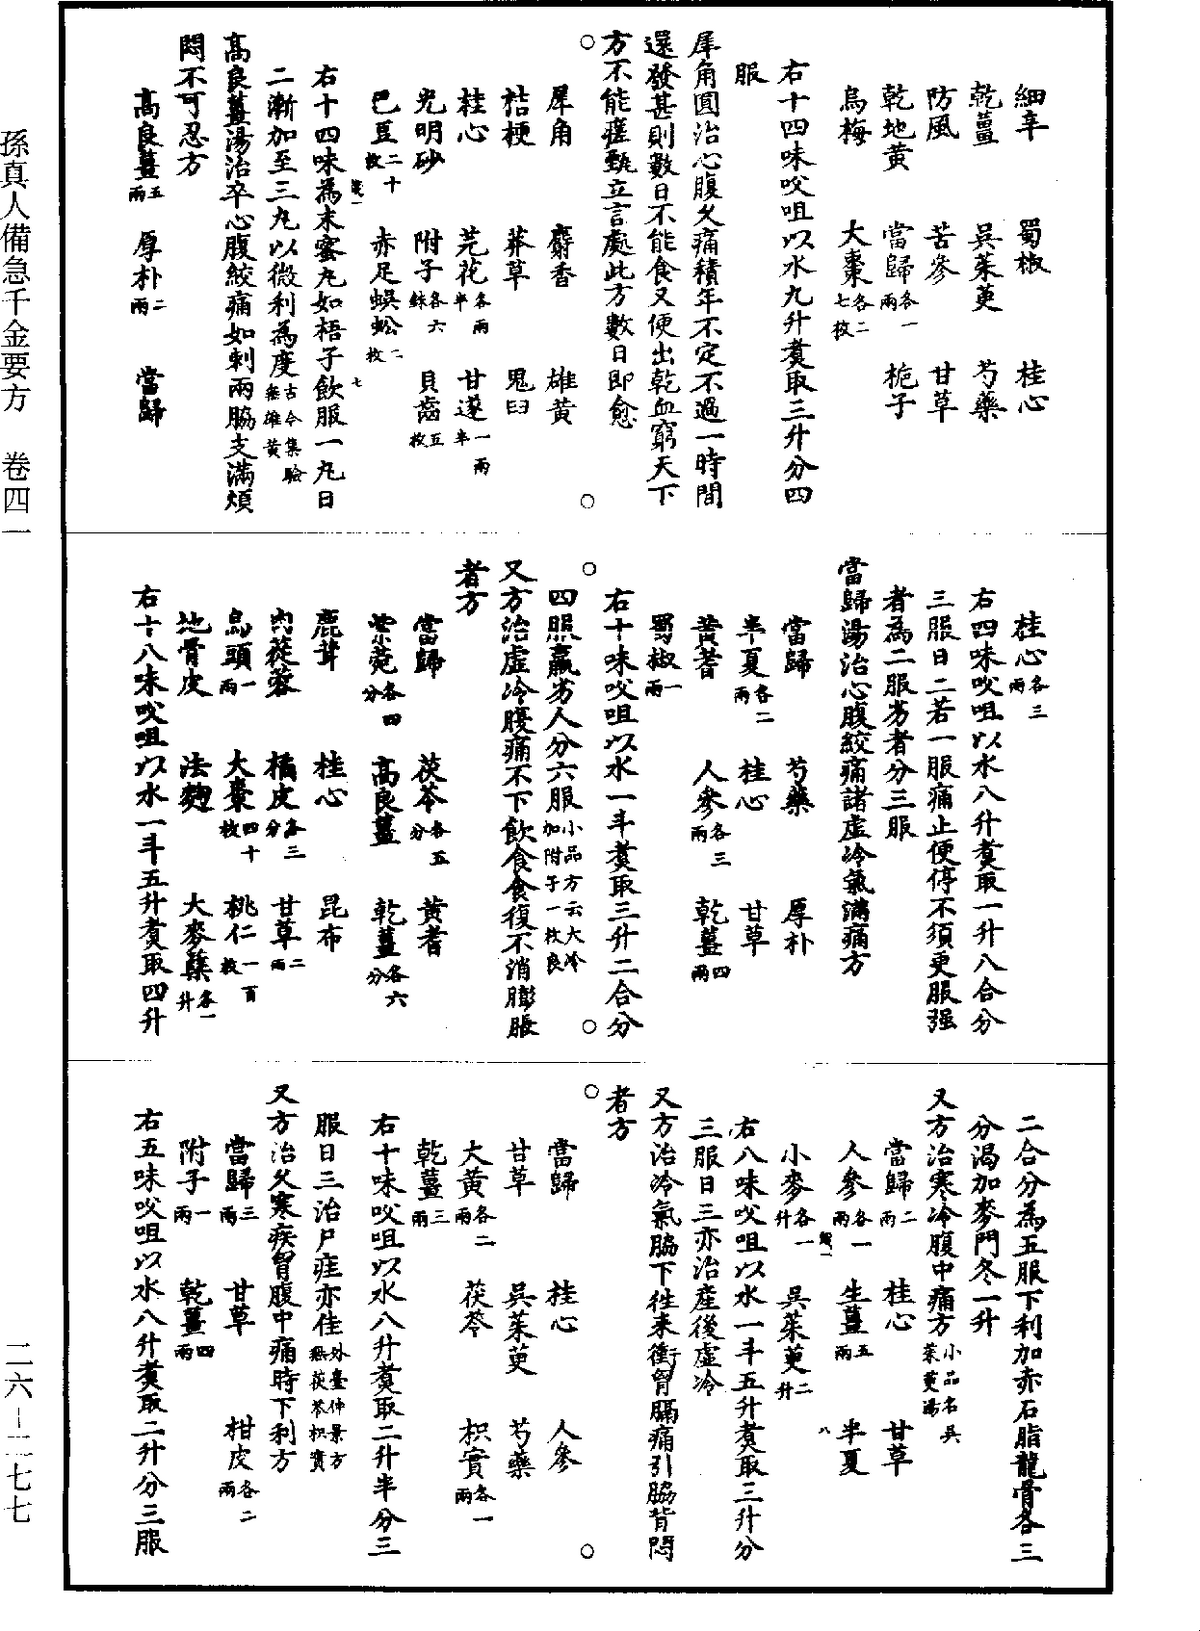 細辛　蜀椒　桂心
乾薑　吳茱萸　芍藥
防風　苦參　甘草
乾地黃　當歸各一兩　梔子
烏梅　大棗各二七枚
右十四味㕮咀以水九升煑取三升分四
服
犀角圓治心腹久痛積年不定不過一時間
還發甚則數日不能食又便出乾血窮天下
方不能瘥甄立言處此方數日即愈
犀角　麝香　雄黃
桔梗　莽草　鬼臼
桂心　芫花各半兩　甘遂一兩半
光明砂　附子各六銖　貝齒五枚
巴豆二十枚　赤足蜈蚣二枚
右十四味為末蜜丸如梧子飲服一丸日
二漸加至三丸以微利為度古今集驗無雄黃
高良薑湯治卒心腹絞痛如刺兩脇支滿煩
悶不可忍方
高良薑五兩　厚朴二兩　當歸
桂心各三兩
右四味㕮咀以水八升煑取一升八合分
三服日二若一服痛止便停不須更服强
者為二服劣者分三服
當歸湯治心腹絞痛諸虛冷氣滿痛方
當歸　芍藥　厚朴
半夏各二兩　桂心　甘草
黃耆　人參各三兩　乾薑四兩
蜀椒一兩
右十味㕮咀以水一斗煑取三升二合分
四服羸劣人分六服小品方云大冷加附子一枚良
又方治虛冷腹痛不下飲食食復不消膨脹
者方
當歸　茯苓各五分　黃耆
紫菀各四分　高良薑　乾薑各六分
鹿茸　桂心　昆布
肉蓯蓉　橘皮各三分　甘草二兩
烏頭一兩　大棗四十枚　桃仁一百枚
地骨皮　法麴　大麥蘖各一升
右十八味㕮咀以水一斗五升煑取四升
二合分為五服下利加赤石脂龍骨各三
分渴加麥門冬一升
又方治寒冷腹中痛方小品名吳茱萸湯
當歸二兩　桂心　甘草
人參各一兩　生薑五兩　半夏
小麥各一升　吳茱萸二升
右八味㕮咀以水一斗五升煑取三升分
三服日三亦治產後虛冷
又方治冷氣脇下往來衝胷膈痛引脇背悶
者方
當歸　桂心　人參
甘草　吳茱萸　芍藥
大黃各二兩　茯苓　枳實各一兩
乾薑三兩
右十味㕮咀以水八升煑取二升半分三
服日三治尸疰亦佳外臺仲景方無茯苓枳實
又方治久寒疾胷腹中痛時下利方
當歸三兩　甘草　柑皮各二兩
附子一兩　乾薑四兩
右五味㕮咀以水八升煑取二升分三服
孫真人備急千金要方　卷四一
二六－二七七